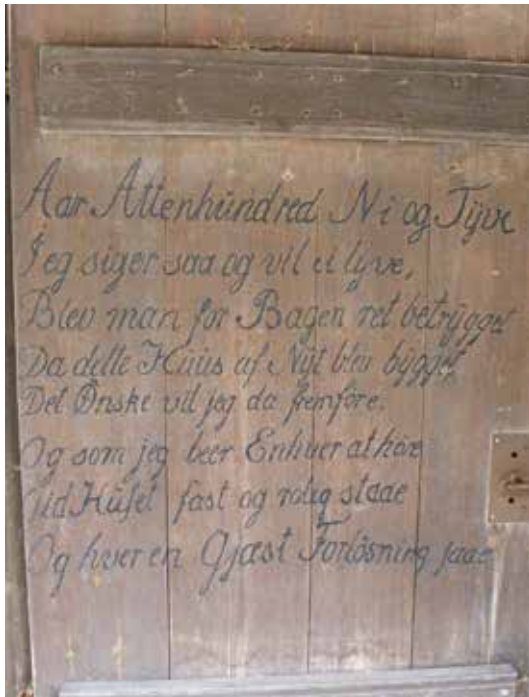 Aar Attenhundred Ni og Tÿve
Jeg siger saa og vil ei lÿve,
Blev man for Bagen ret betrÿgget
Da dette Huus af Nÿt blev bÿgget,
Det Ønske vil jeg da fremföre.
Og som jeg beer Enhver at höre
Gid Huset fast og rolig staae
Og hver en Gjæst Forlösning faae